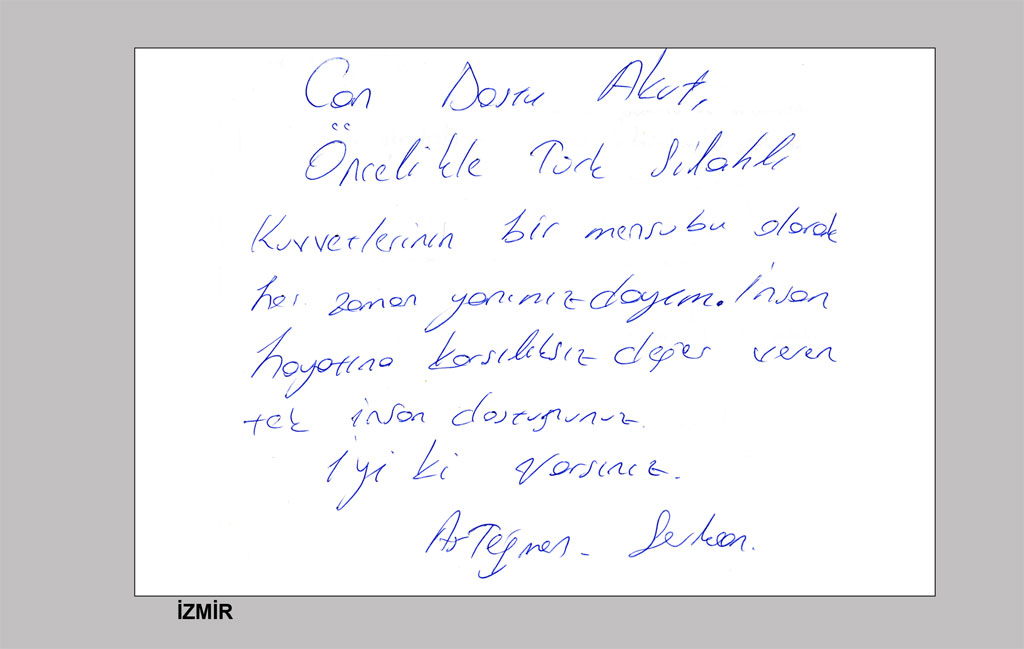 Can Dostu Akut,
Öncelikle Türk Silahlı
Kuvvetlerinin bir mensubu olarak
her zaman yanınızdayım. İnsan
hayatına karşılıksız değer veren
tek insan dostusunuz.
İyi ki varsınız.
As Teğmen - Serkan.
İZMİR